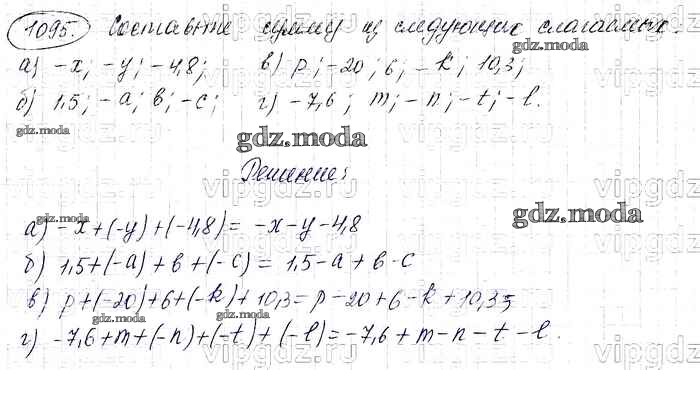 1095. Составьте сумму из следующих слагаемых.
а) -x; -y; -4,8; в) p; -20; 6; -k; 10,3;
б) 1,5; -a; в; -c; г) -7,6; m; -n; -t; -l.
gdz.moda
gdz.moda
gdz.moda
Решение:
gdz.moda
gdz.moda
а) -x+(-y)+(-4,8)= -x-y-4,8
б) 1,5+(-a)+в+(-c)= 1,5-a+в-c
в) p+(-20)+6+(-k)+10,3=p-20+6-k+10,3;
gdz.moda
gdz.moda
г) -7,6+m+(-n)+(-t)+(-l)=-7,6+m-n-t-l.
vipgdz.ru
vipgdz.ru
vipgdz.ru
vipgdz.ru